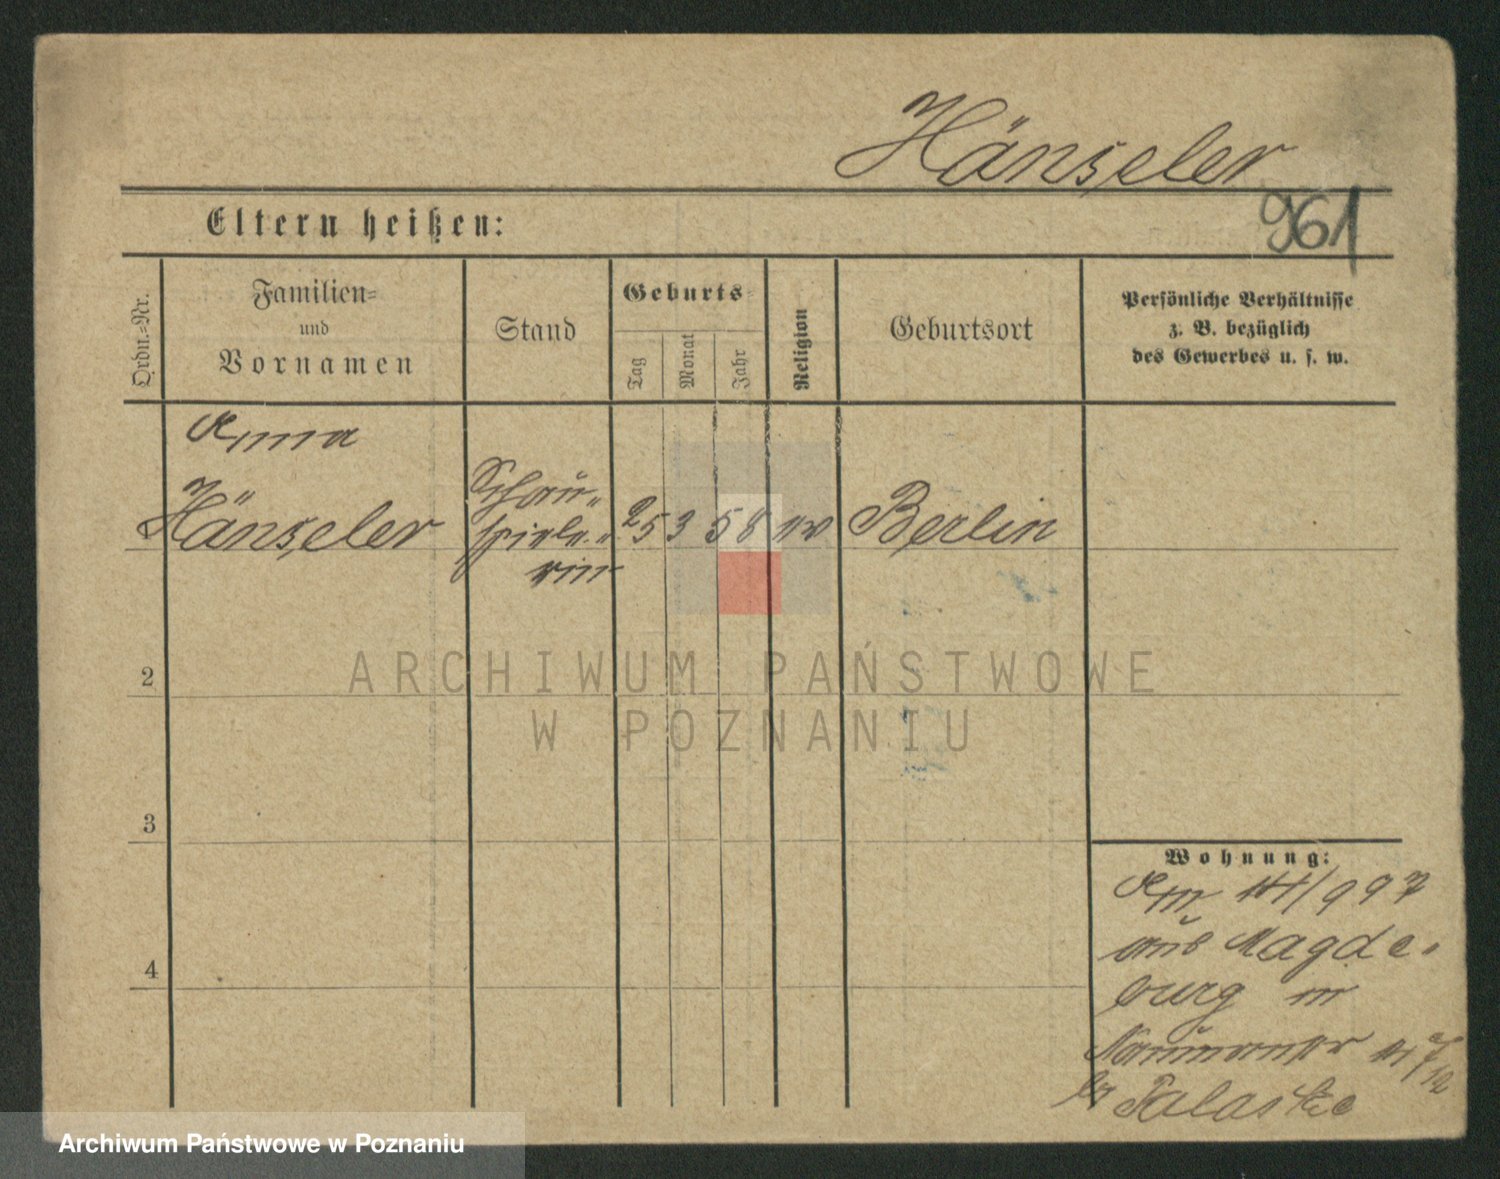 Hänseler
961
Eltern heißen:
Ordn.-Nr.
Familien-
und
Vornamen
Stand
Geburts-
Tag
Monat
Jahr
Religion
Geburtsort
Persönliche Verhältnisse
z. B. bezüglich
des Gewerbes u. s. w.
Anna
Hänseler
Schau-
spiele-
rin
25 3 58 ev Berlin
2
3
4
Wohnung:
997
aus Magde-
burg in
ARCHIWUM PAŃSTWOWE
W POZNANIU
Archiwum Państwowe w Poznaniu